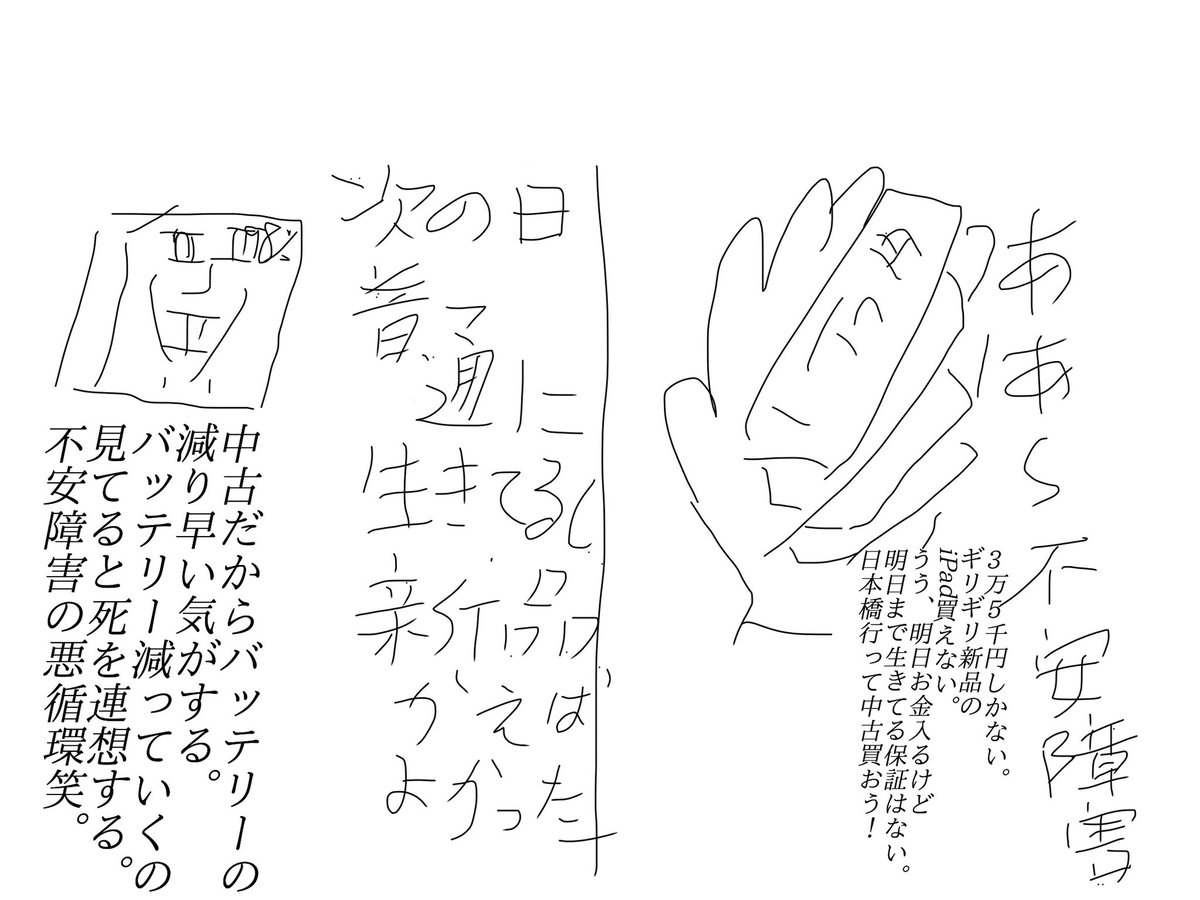 ああ〜不安障害
3万5千円しかない。
ギリギリ新品の
iPad買えない。
うう、明日お金入るけど
明日まで生きてる保証はない。
日本橋行って中古買おう！
次の日
普通に
生きてるし
新品
かえば
よかった
中古だからバッテリーの
減り早い気がする。
バッテリー減っていくの
見てると死を連想する。
不安障害の悪循環笑。